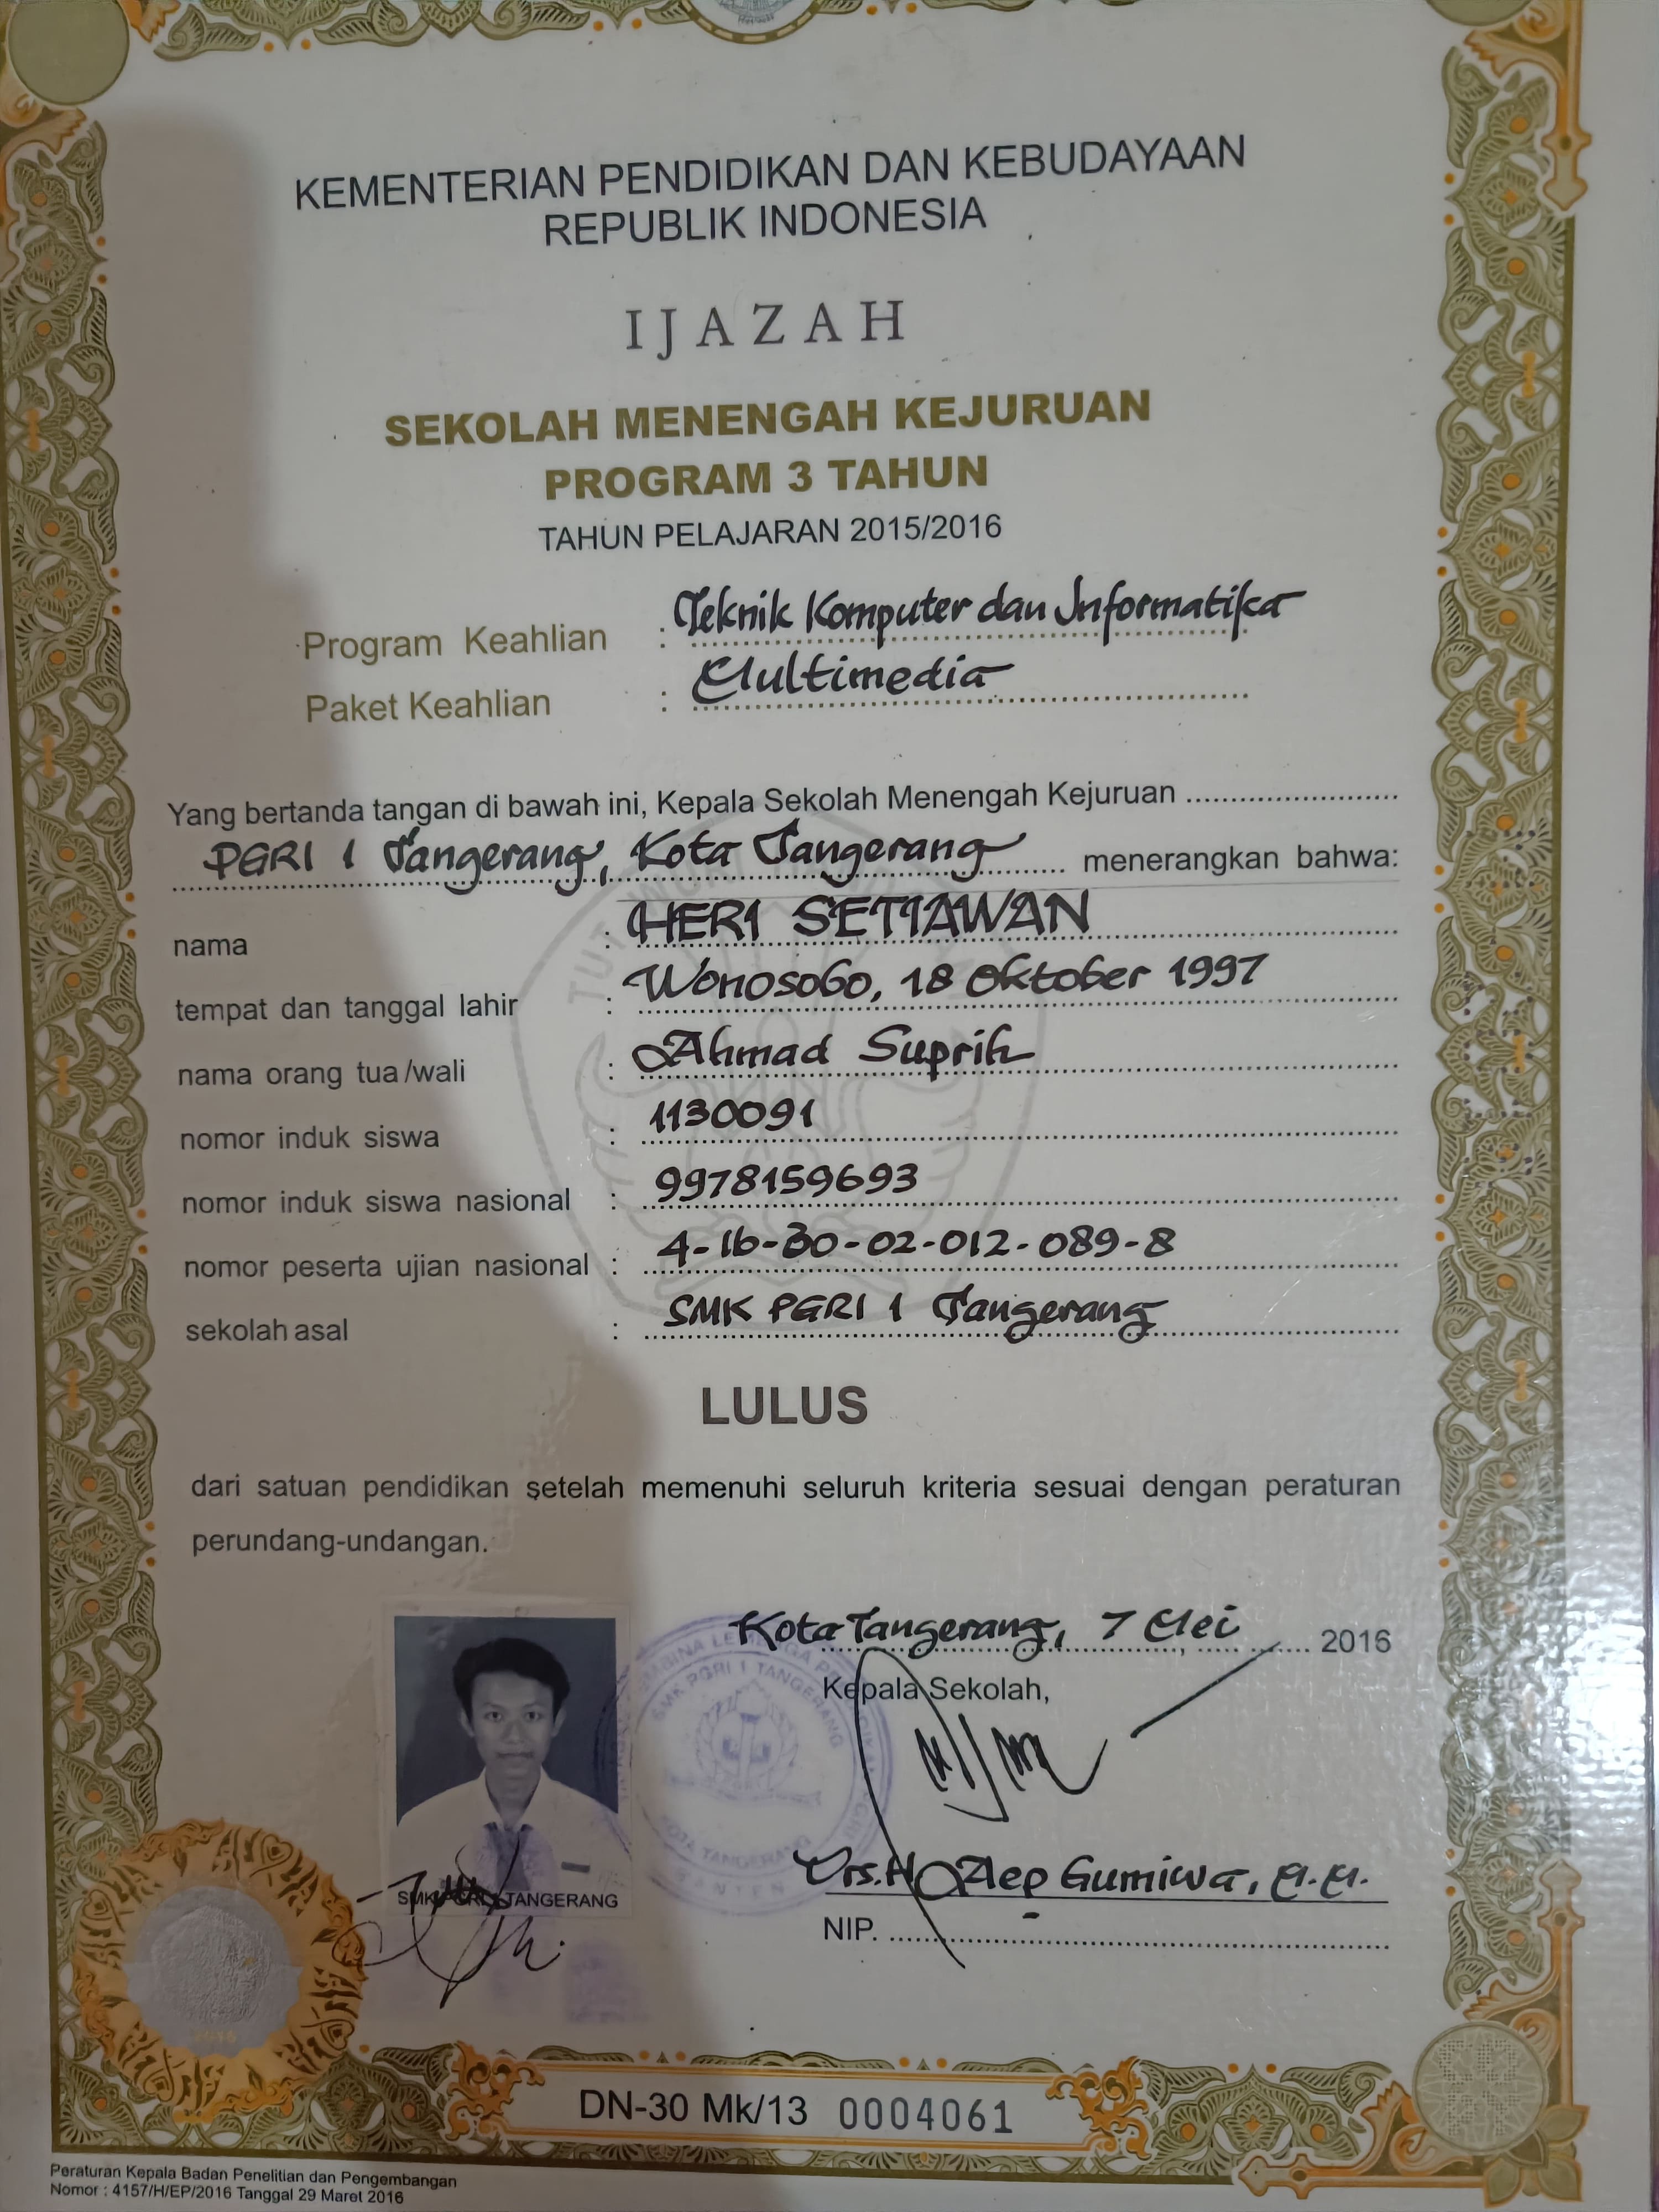 KEMENTERIAN PENDIDIKAN DAN KEBUDAYAAN
REPUBLIK INDONESIA
IJAZAH
SEKOLAH MENENGAH KEJURUAN
PROGRAM 3 TAHUN
TAHUN PELAJARAN 2015/2016
Program Keahlian : Teknik Komputer dan Informatika
Paket Keahlian : Multimedia
Yang bertanda tangan di bawah ini, Kepala Sekolah Menengah Kejuruan
PGRI 1 Tangerang, Kota Tangerang menerangkan bahwa:
nama : HERI SETIAWAN
tempat dan tanggal lahir : Wonosobo, 18 Oktober 1997
nama orang tua/wali : Ahmad Suprih
nomor induk siswa : 1130091
nomor induk siswa nasional : 9978159693
nomor peserta ujian nasional : 4-16-30-02-012-089-8
sekolah asal : SMK PGRI 1 Tangerang
LULUS
dari satuan pendidikan setelah memenuhi seluruh kriteria sesuai dengan peraturan
perundang-undangan.
Kota Tangerang, 7 Mei 2016
Kepala Sekolah,
SMK PGRI 1 TANGERANG
KOTA TANGERANG
BANTEN
Drs. H. Aep Gumiwa, M.M.
NIP. -
SMK PGRI 1 TANGERANG
2016
DN-30 Mk/13 0004061
Peraturan Kepala Badan Penelitian dan Pengembangan
Nomor : 4157/H/EP/2016 Tanggal 29 Maret 2016